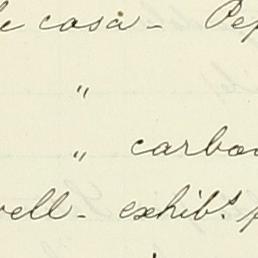 casa - Pep
"
" carbo
well - exhib.s